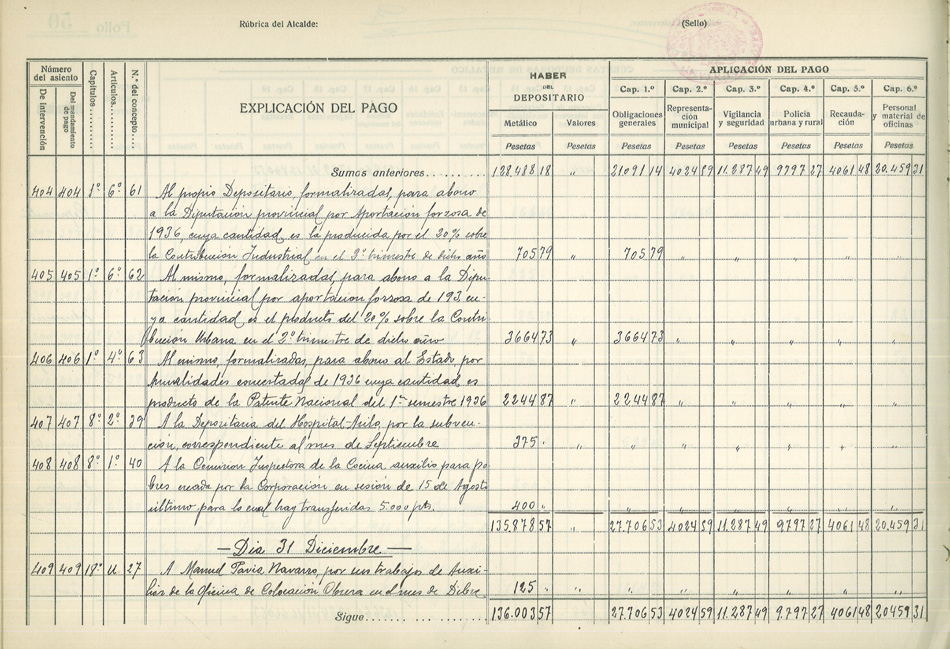 Rúbrica del Alcalde:
(Sello)
Número del asiento
De Intervención
Del mandamiento de pago
Capítulos
Artículos
N.º del concepto
EXPLICACIÓN DEL PAGO
HABER DEL DEPOSITARIO
Metálico Valores
Pesetas Pesetas
APLICACIÓN DEL PAGO
Cap. 1.º Cap. 2.º Cap. 3.º Cap. 4.º Cap. 5.º Cap. 6.º
Obligaciones generales
Representación municipal
Vigilancia y seguridad
Policía urbana y rural
Recaudación
Personal y material de oficinas
Pesetas Pesetas Pesetas Pesetas Pesetas Pesetas
Sumas anteriores 128.488 18 " 21091 14 4024 59 11.287 49 9797 27 4061 48 20.459 31
404 404 1º 6º 61 Al propio Depositario, formalizadas, para abono
a la Diputación provincial por Aportación forzosa de
1936, cuya cantidad es la producida por el 20% sobre
la Contribución Industrial en el 3º trimestre de dicho año 705 79 " 705 79 " " " " "
405 405 1º 6º 62 Al mismo, formalizadas, para abono a la Dipu-
tación provincial por aportacion forzosa de 193, cu-
ya cantidad es el producto del 20% sobre la Contri-
bución Urbana en el 2º trimestre de dicho año 3664 73 " 3664 73 " " " " "
406 406 1º 4º 63 Al mismo, formalizadas, para abono al Estado por
Anualidades concertadas de 1936 cuya cantidad es
producto de la Patente Nacional del 1er semestre 1936 2244 87 " 2244 87 " " " " "
407 407 8º 2º 39 A la Depositaria del Hospital-Asilo por la subven-
ción, correspondiente al mes de Septiembre 375 " " " " " " " "
408 408 8º 1º 40 A la Comision Inspectora de la Cocina auxilio para po-
bres creada por la Corporación en sesión de 15 de Agosto
último para lo cual hay transferidas 5.000 pts. 400 " " " " " " "
135.878 57 " 27.706 53 4024 59 11.287 49 9797 27 4061 48 20.459 31
— Dia 31 Diciembre —
409 409 18º u 27 A Manuel Pavia Navarro, por sus trabajos de Auxi-
liar de la Oficina de Colocación Obrera en el mes de Dicbre 125 " " " " " " " "
Sigue 136.003 57 27.706 53 4024 59 11.287 49 9.797 27 4061 48 20459 31